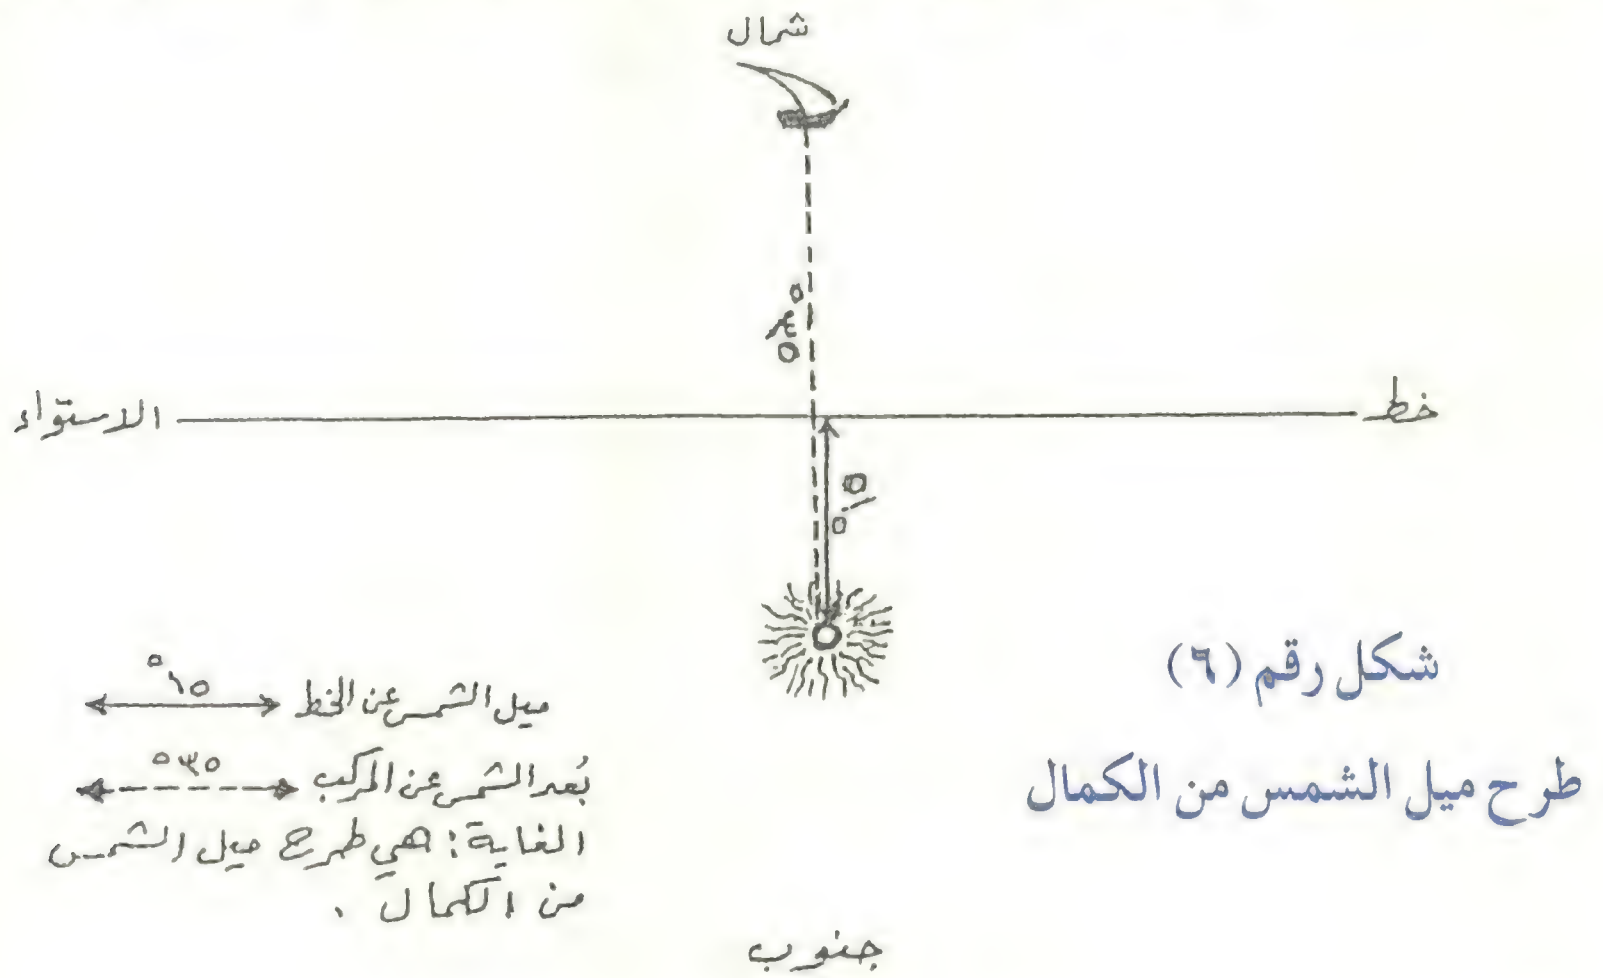 شمال
°٣٥
خط الاستواء
°١٥
شكل رقم (٦)
طرح ميل الشمس من الكمال
ميل الشمس عن الخط °١٥
بُعد الشمس عن المركب °٣٥
الغاية: هي طرح ميل الشمس
من الكمال .
جنوب